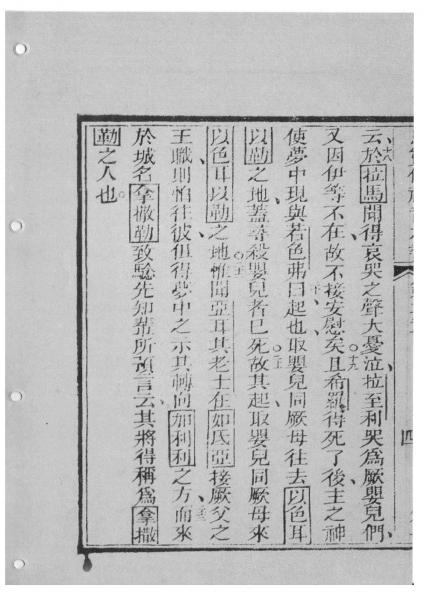 云於拉馬聞得哀哭之聲大憂泣拉至利哭爲厥嬰兒們
又因伊等不在故不接安慰矣且希羅得死了後主之神
使夢中現與若色弗曰起也取嬰兒同厥母往去以色耳
以勒之地蓋尋殺嬰兒者已死故其起取嬰兒同厥母來
以色耳以勒之地惟聞亞耳其老士在如氐亞接厥父之
王職則怕往彼但得夢中之示其轉向加利利之方而來
於城名拿撒勒致驗先知輩所預言云其將得稱爲拿撒
勒之人也
四